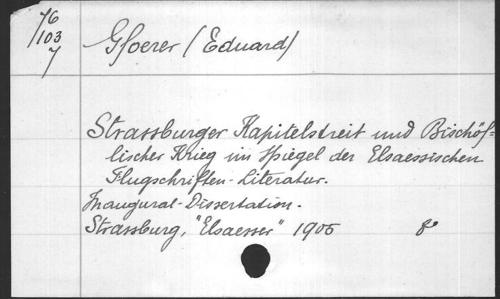 76
/103
7
Gfoerer (Eduard)
Strassburger Kapitelstreit und Bischöf-
lischer Krieg im Spiegel der Elsaessischen
Flugschriften-Literatur.
Inaugural-Dissertation.
Strassburg, "Elsaesser" 1905 8°